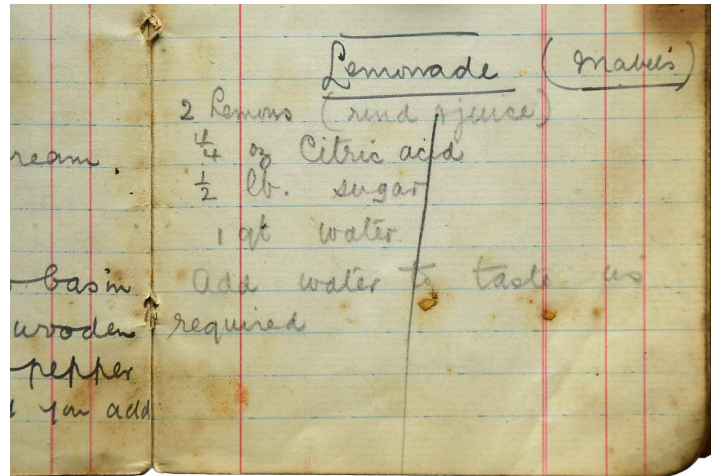 ream.
basin
wooden
pepper
you add
Lemonade (Mabel's)
2 Lemons (rind & juice)
1/4 oz Citric acid
1/2 lb. sugar
1 qt water
Add water to taste as
required